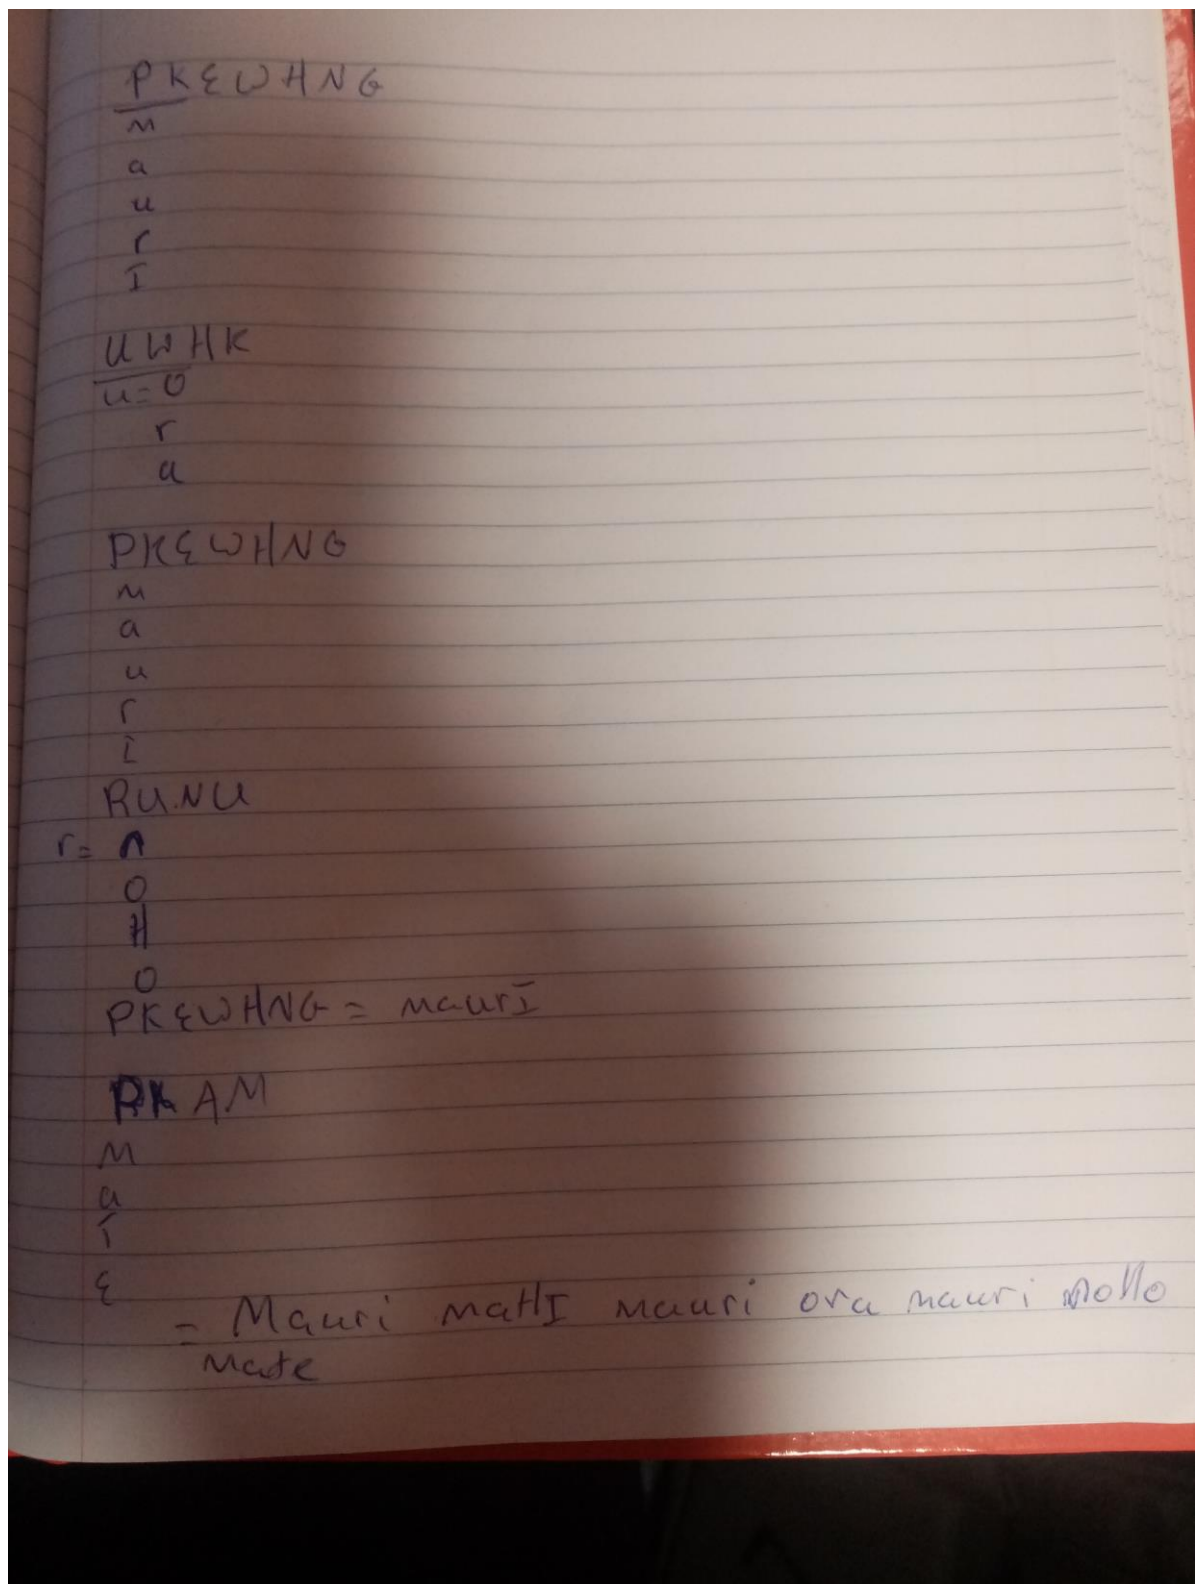 PKEWHNG
M
a
u
r
I
UWHK
u=O
r
a
PKEWHNG
M
a
u
r
I
RUNU
r= n
O
H
O
PKEWHNG = maurI
PKAM
M
a
T
E
= Mauri matHI mauri ora mauri noHo
Mate